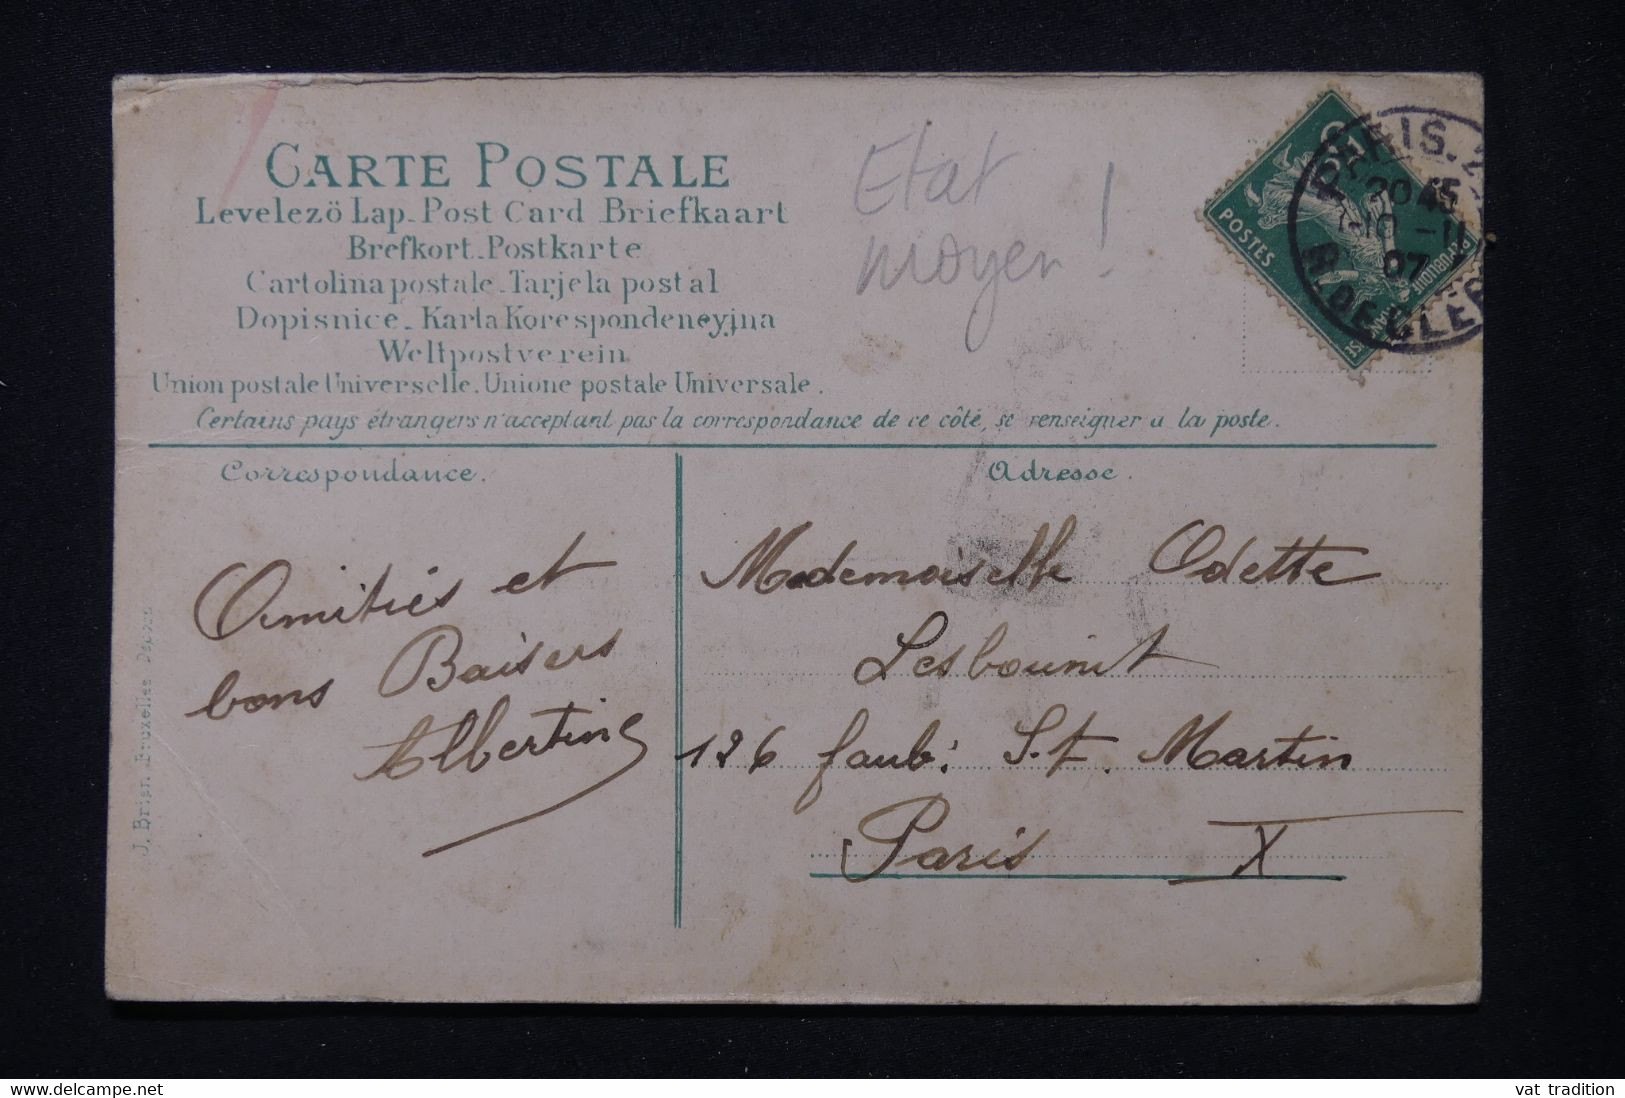 CARTE POSTALE
Levelezö Lap_Post Card_Briefkaart
Brefkort_Postkarte
Cartolina postale_Tarjela postal
Dopisnice_Karla Korespondencyjna
Weltpostverein
Union postale Universelle. Unione postale Universale.
Certains pays étrangers n'acceptant pas la correspondance de ce côté, se renseigner a la poste.
Etat
moyen !
POSTES
PARIS.
20 45
10 - 11
07
Correspondance.
Adresse.
Amitiés et
bons Baisers
Albertine
Mademoiselle Odette
Lesbounit
126 faub: St. Martin
Paris X
J. Brian Bruxelles Dépose
vat tradition